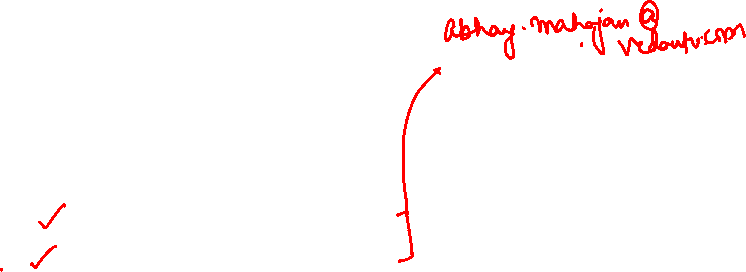 abhay.mahajan@
vedantu.com